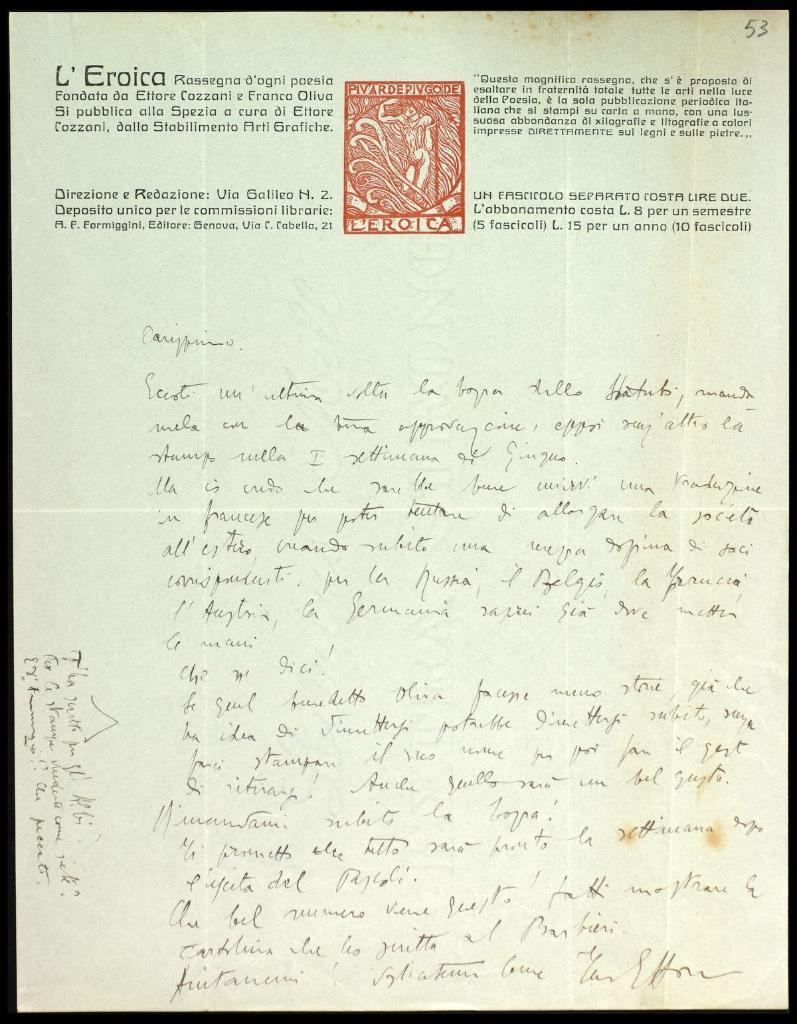 53
L'Eroica Rassegna d'ogni poesia
Fondata da Ettore Cozzani e Franco Oliva
Si pubblica alla Spezia a cura di Ettore
Cozzani, dallo Stabilimento Arti Grafiche.
Direzione e Redazione: Via Galileo N. 2.
Deposito unico per le commissioni librarie:
A. F. Formiggini, Editore: Genova, Via C. Cabella, 21
PIVARDEPIVGODE
L'EROICA
"Questa magnifica rassegna, che s'è proposta di
esaltare in fraternità totale tutte le arti nella luce
della Poesia, è la sola pubblicazione periodica Ita-
liana che si stampi su carta a mano, con una lus-
suosa abbondanza di xilografie e litografie a colori
impresse DIRETTAMENTE sui legni e sulle pietre.,,
UN FASCICOLO SEPARATO COSTA LIRE DUE.
L'abbonamento costa L. 8 per un semestre
(5 fascicoli) L. 15 per un anno (10 fascicoli)
Carissimo.
Eccoti un'ultima volta la bozza dello Statuto, manda
mela con la tua approvazione, eppoi senz'altro la
stampo nella I settimana di Giugno.
Ma io credo che sarebbe bene unirvi una traduzione
in francese per poter tentare di allargare la società
all'estero, creando subito una mezza dozzina di soci
corrispondenti. per la Russia, il Belgio, la Francia,
l'Austria, la Germania saprei già dove metter
le mani
Che ne dici?
Se quel benedetto Oliva facesse meno storie, già che
ha idea di dimettersi potrebbe dimettersi subito, senza
farci stampare il suo nome per poi fare il gesto
di ritirarsi! Anche quello sarà un bel gesto.
Rimandami subito la bozza!
Ti prometto che tutto sarà pronto la settimana dopo
l'uscita del Pascoli.
Che bel numero viene questo! Fatti mostrare la
cartolina che ho scritta al Barbieri.
Aiutatemi! Vogliatemi bene Tuo Ettore
T'ha scritto per gli Albi
Per la stampa
Che peccato.